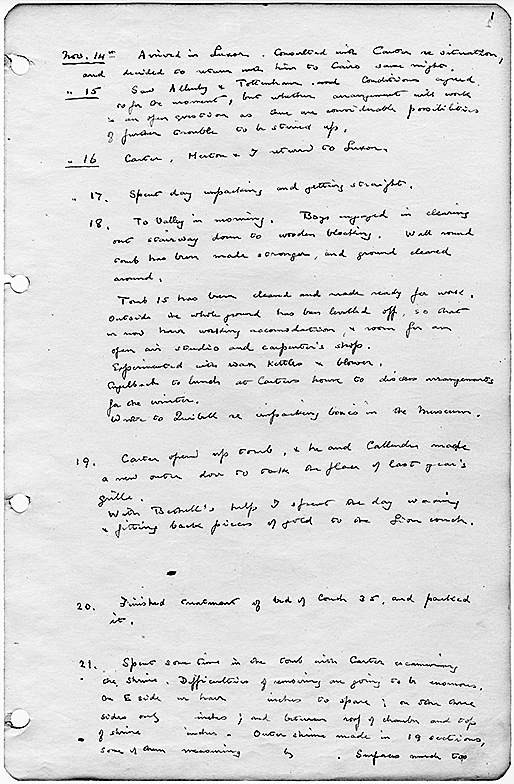 1
Nov. 14th Arrived in Luxor. Consulted with Carter re situation,
and decided to return with him to Cairo same night.
" 15 Saw Allenby & Tottenham and Conditions agreed
so far for the moment, but whether arrangement will work
is an open question as there are considerable possibilities
of further trouble to be stirred up.
" 16 Carter, Merton & I returned to Luxor.
" 17. Spent day unpacking and getting straight.
18. To Valley in morning. Boys engaged in clearing
out stairway down to wooden blocking. Wall round
tomb has been made stronger, and ground cleared
around.
Tomb 15 has been cleaned and made ready for work.
Outside the whole ground has been levelled off, so that
we now have working accomodation, & room for an
open air studio and carpenter's shop.
Experimented with wax kettles & blower.
back to lunch at Carter's house to discuss arrangements
for the winter.
Wrote to Quibell re unpacking boxes in the Museum.
19. Carter opened up tomb, & he and Callender made
a new outer door to take the place of last year's
grille.
With Bethell's help I spent the day waxing
& fitting back pieces of gold to the Lion couch.
20. Finished treatment of bed of Couch 35, and packed
it.
21. Spent some time in the tomb with Carter examining
the shrine. Difficulties of removing are going to be enormous.
On E side we have inches to spare; on other three
sides only inches; and between roof of chamber and top
of shrine inches. Outer shrine made in 19 sections,
some of them measuring by . Surfaces much too